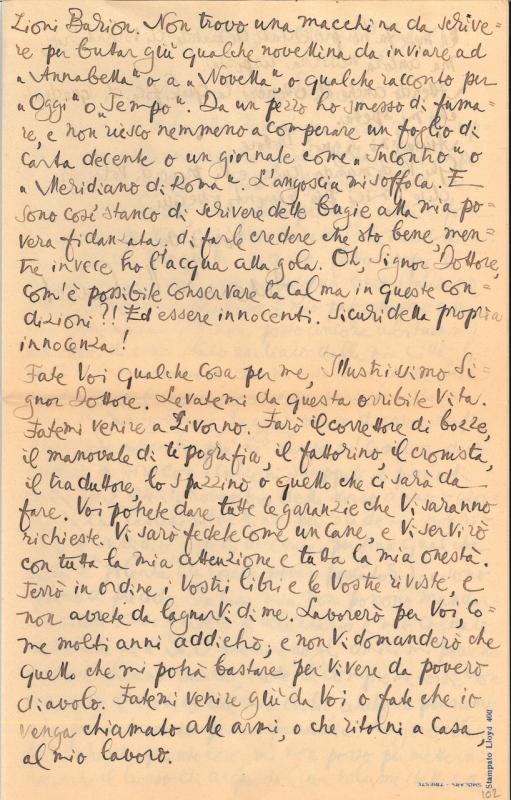 Lioni Barion. Non trovo una macchina da scrive=
re per buttar giù qualche novellina da inviare ad
"Annabella" o a "Novella", o qualche racconto per
"Oggi" o "Tempo". Da un pezzo ho smesso di fuma=
re, e non riesco nemmeno a comperare un foglio di
carta decente o un giornale come "Incontro" o
"Meridiano di Roma". L'angoscia mi soffoca. E
sono così stanco di scrivere delle bugie alla mia po=
vera fidanzata, di farle credere che sto bene, men=
tre invece ho l'acqua alla gola. Oh, Signor Dottore,
com'è possibile conservare la calma in queste con=
dizioni?! Ed essere innocenti. Sicuri della propria
innocenza!
Fate Voi qualche cosa per me, Illustrissimo Si=
gnor Dottore. Levatemi da questa orribile vita.
Fatemi venire a Livorno. Farò il correttore di bozze,
il manovale di tipografia, il fattorino, il cronista,
il traduttore, lo spazzino o quello che ci sarà da
fare. Voi potrete dare tutte le garanzie che Vi saranno
richieste. Vi sarò fedele come un cane, e Vi servirò
con tutta la mia attenzione e tutta la mia onestà.
Terrò in ordine i Vostri libri e le Vostre riviste, e
non avrete da lagnarVi di me. Lavorerò per Voi, co=
me molti anni addietrò, e non Vi domanderò che
quello che mi potrà bastare per vivere da povero
diavolo. Fatemi venire giù da Voi o fate che io
venga chiamato alle armi, o che ritorni a casa,
al mio lavoro.
Stampato Lloyd 400
SMOLARS - TRIESTE
102